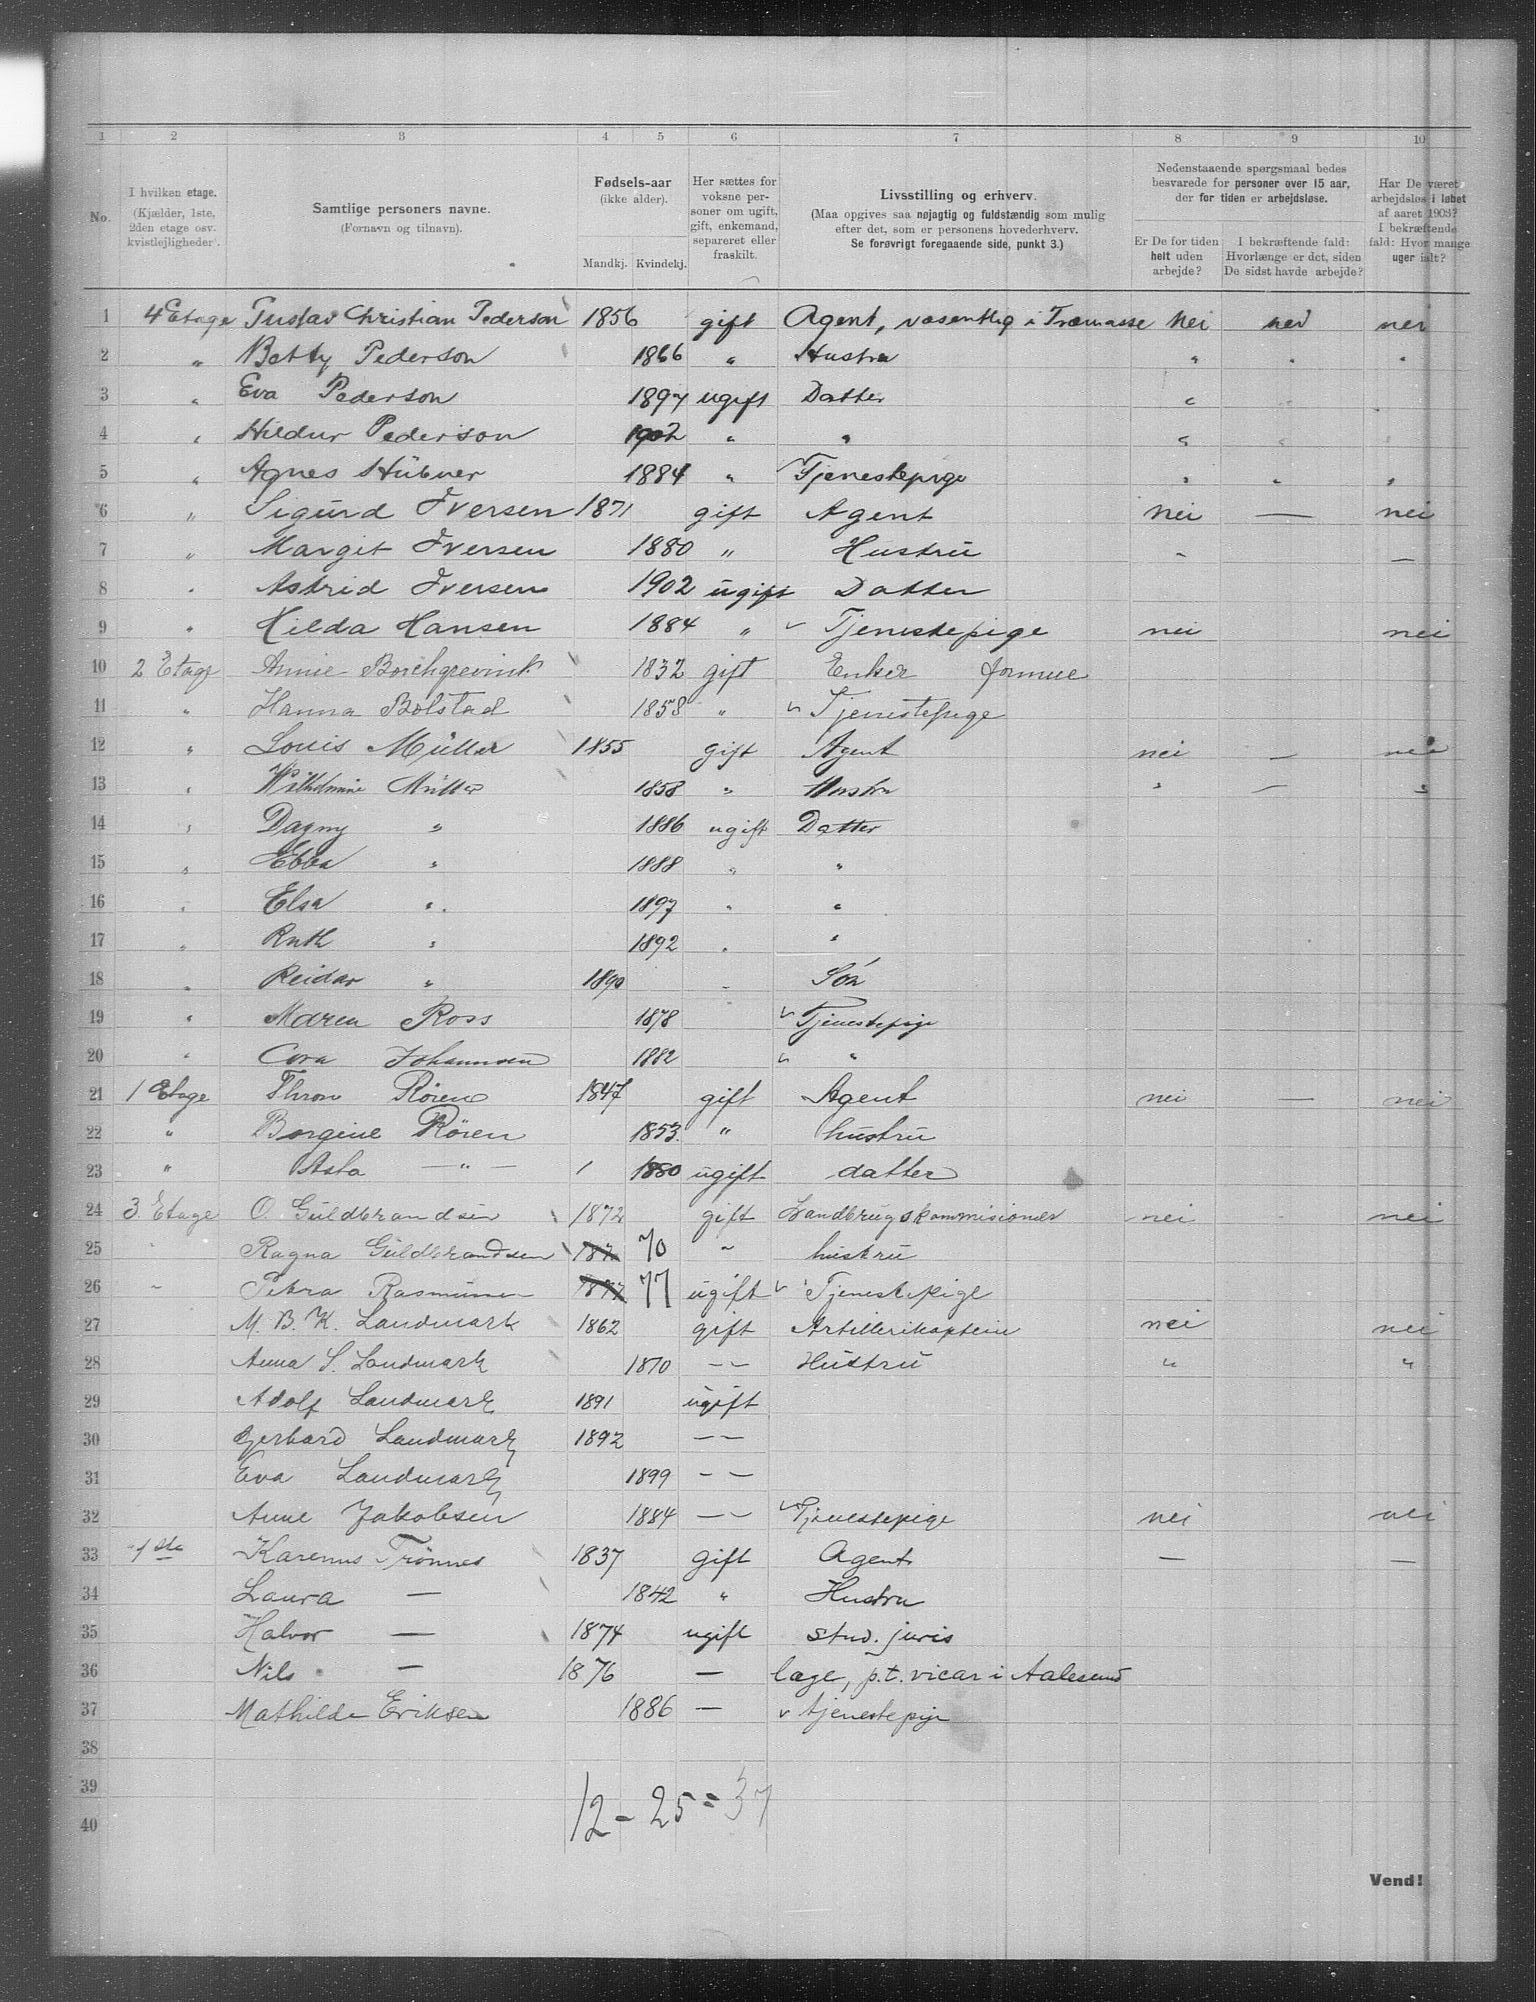 1 2 3 4 5 6 7 8 9 10
No.
I hvilken etage.
(Kjælder, 1ste,
2den etage osv.
kvistlejligheder).
Samtlige personers navne.
(Fornavn og tilnavn).
Fødsels-aar
(ikke alder).
Mandkj. Kvindekj.
Her sættes for
voksne per-
soner om ugift,
gift, enkemand,
separeret eller
fraskilt.
Livsstilling og erhverv.
(Maa opgives saa nøjagtig og fuldstændig som mulig
efter det, som er personens hovederhverv.
Se forøvrigt foregaaende side, punkt 3.)
Nedenstaaende spørgsmaal bedes
besvarede for personer over 15 aar,
der for tiden er arbejdsløse.
Er De for tiden
helt uden
arbejde?
I bekræftende fald:
Hvorlænge er det, siden
De sidst havde arbejde?
Har De været
arbejdsløs i løbet
af aaret 1903?
I bekræftende
fald: Hvor mange
uger ialt?
1 4 Etage Gustav Christian Pederson 1856 gift Agent, væsentlig i Træmasse Nei nei nei
2 " Betty Pederson 1866 " Hustru " " "
3 " Eva Pederson 1897 ugift Datter "
4 " Hildur Pederson 1902 " " "
5 " Agnes Hübner 1884 " Tjenestepige " " "
6 " Sigurd Iversen 1871 gift Agent nei — nei
7 " Margit Iversen 1880 " Hustru " —
8 " Astrid Iversen 1902 ugift Datter
9 " Hilda Hansen 1884 " Tjenestepige nei nei
10 2 Etage Annie Borchgrevink 1832 gift Enke formue
11 " Hanna Bolstad 1858 " Tjenestepige
12 " Louis Müller 1855 gift Agent nei — nei
13 " Wilhelmine Müller 1858 " Hustru " — "
14 " Dagny " 1886 ugift Datter
15 " Ebba " 1888 " "
16 " Elsa " 1897 " "
17 " Ruth " 1892 " "
18 " Reidar " 1890 " Søn
19 " Maren Ross 1878 Tjenestepige
20 " Cora Johannsen 1882 "
21 1 Etage Thron Röien 1847 gift Agent nei — nei
22 " Borgine Röien 1853. " hustru
23 " Asta — " — 1 1880 ugift datter
24 3 Etage O. Guldbrandsen 1872 gift Landbrugskommisionær nei nei
25 " Ragna Guldbrandsen 187 70 " hustru
26 " Petra Rasmussen 1877 77 ugift Tjenestepige
27 M. B. K. Landmark 1862 gift Artillerikaptein nei nei
28 Anna S. Landmark 1870 — — Hustru " "
29 Adolf Landmark 1891 ugift
30 Gerhard Landmark 1892 — —
31 Eva Landmark 1899 — —
32 Anne Jakobsen 1884 — — Tjenestepige nei nei
33 1ste Karenus Trönnes 1837 gift Agent — —
34 Laura — 1842 " Hustru
35 Halvor — 1874 ugift stud. juris
36 Nils — 1876 — læge, p.t. vicar i Aalesund
37 Mathilde Eriksen 1886 — tjenestepige
38
39
40
12 - 25 = 37
Vend!